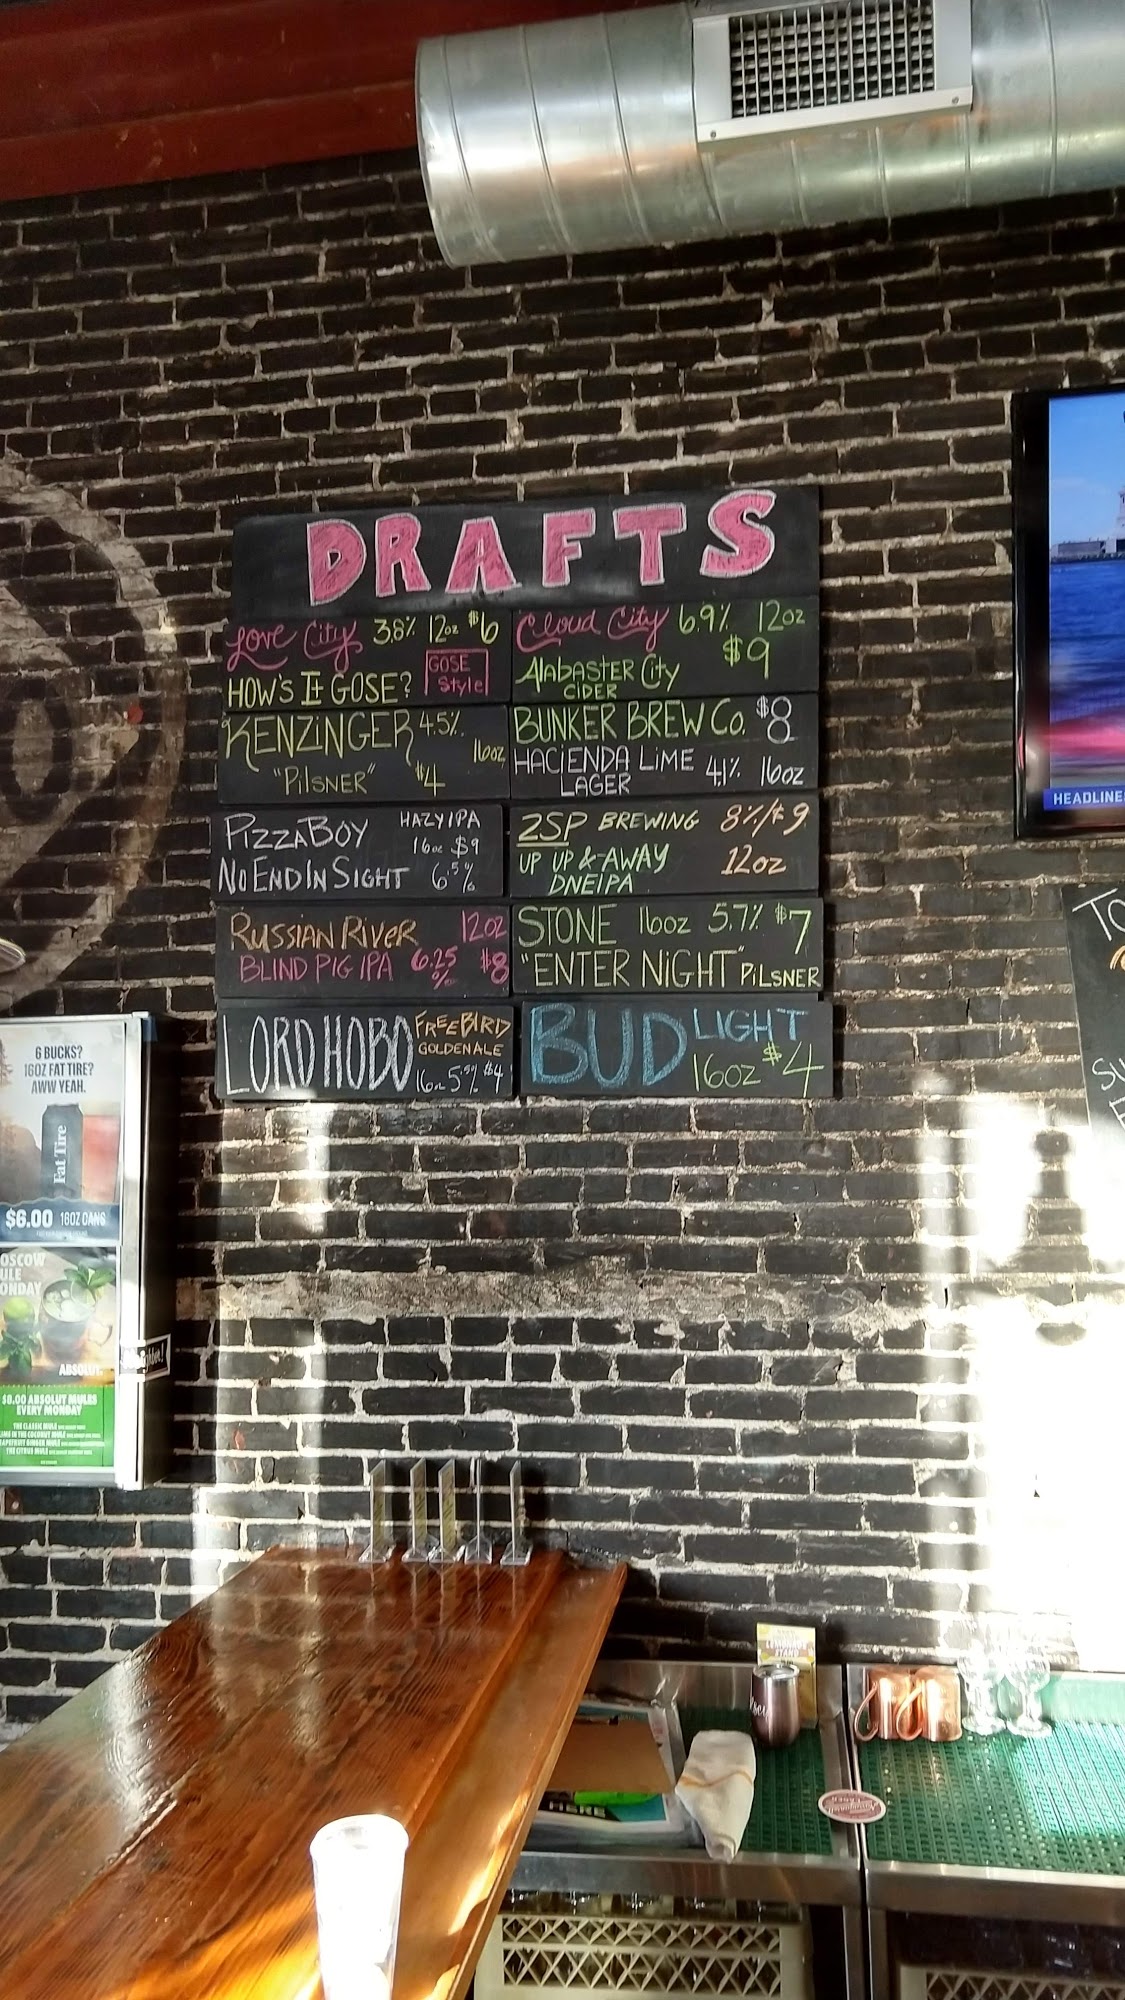 DRAFTS
Love City 3.8% 12oz $6
HOW'S It GOSE? GOSE Style
KENZiNGER 4.5%
16oz
"PilSNER" $4
PizzaBoy HAZY IPA
16oz $9
No End In Sight 6.5%
Russian River 12oz
BLIND PIG IPA 6.25% $8
LORD HOBO FREEBIRD
GOLDEN ALE
16oz 5.5% $4
Cloud City 6.9% 12oz
$9
Alabaster City
CIDER
BUNKER BREW Co. $8
HACiENDA LiME
LAGER 4.1% 16oz
2SP BREWING 8%/$9
UP UP & AWAY 12oz
DNEIPA
STONE 16oz 5.7% $7
"ENTER NiGHT" PilSNER
BUD LIGHT
16oz $4
HEADLINES
TO
SU
6 BUCKS?
16OZ FAT TIRE?
AWW YEAH.
Fat Tire
$6.00 16OZ CANS
OSCOW
ULE
ONDAY
ABSOLUT.
$8.00 ABSOLUT MULES
EVERY MONDAY
THE CLASSIC MULE
LIME IN THE COCONUT MULE
GRAPEFRUIT GINGER MULE
THE CITRUS MULE
LEMONADE
STAND
HERE